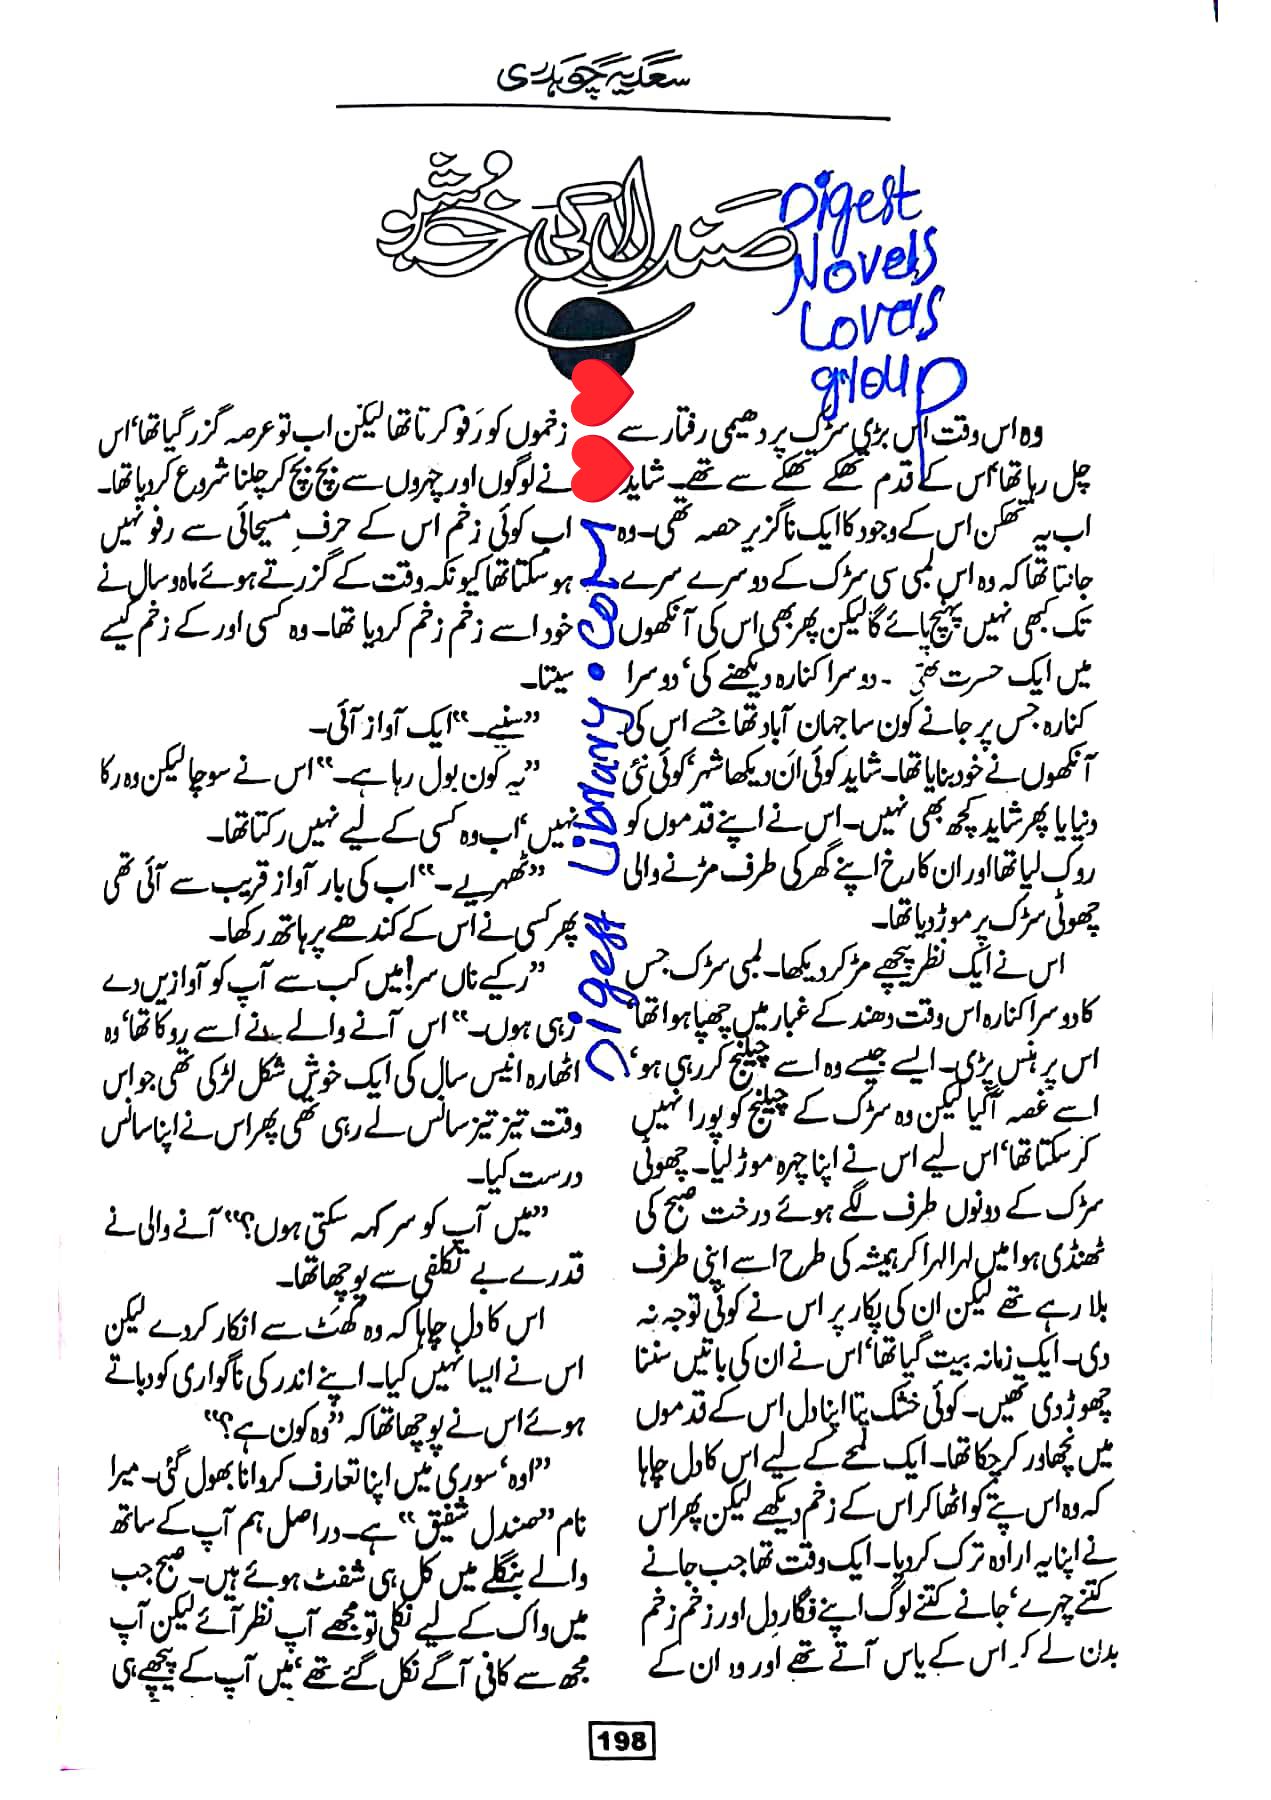 سعدیہ چوہدری
صندل کی خوشبو
Digest
Novels
Lovers
group
وہ اس وقت اس بڑی سڑک پر دھیمی رفتار سے
چل رہا تھا‘ اس کے قدم تھکے تھکے سے تھے۔ شاید
اب یہ تھکن اس کے وجود کا ایک ناگزیر حصہ تھی۔ وہ
جانتا تھا کہ وہ اس لمبی سی سڑک کے دوسرے سرے
تک کبھی نہیں پہنچ پائے گا لیکن پھر بھی اس کی آنکھوں
میں ایک حسرت تھی ۔ دوسرا کنارہ دیکھنے کی‘ دوسرا
کنارہ جس پر جانے کون سا جہان آباد تھا جسے اس کی
آنکھوں نے خود بنایا تھا۔ شاید کوئی اَن دیکھا شہر‘ کوئی نئی
دنیا یا پھر شاید کچھ بھی نہیں۔ اس نے اپنے قدموں کو
روک لیا تھا اور ان کا رخ اپنے گھر کی طرف مڑنے والی
چھوٹی سڑک پر موڑ دیا تھا۔
اس نے ایک نظر پیچھے مڑ کر دیکھا۔ لمبی سڑک جس
کا دوسرا کنارہ اس وقت دھند کے غبار میں چھپا ہوا تھا‘
اس پر ہنس پڑی۔ ایسے جیسے وہ اسے چیلنج کر رہی ہو‘
اسے غصہ آگیا لیکن وہ سڑک کے چیلنج کو پورا نہیں
کر سکتا تھا‘ اس لیے اس نے اپنا چہرہ موڑ لیا۔ چھوٹی
سڑک کے دونوں طرف لگے ہوئے درخت صبح کی
ٹھنڈی ہوا میں لہرا لہرا کر ہمیشہ کی طرح اسے اپنی طرف
بلا رہے تھے لیکن ان کی پکار پر اس نے کوئی توجہ نہ
دی۔ ایک زمانہ بیت گیا تھا‘ اس نے ان کی باتیں سننا
چھوڑ دی تھیں۔ کوئی خشک پتا اپنا دل اس کے قدموں
میں نچھاور کر چکا تھا۔ ایک لمحے کے لیے اس کا دل چاہا
کہ وہ اس پتے کو اٹھا کر اس کے زخم دیکھے لیکن پھر اس
نے اپنا یہ ارادہ ترک کر دیا۔ ایک وقت تھا جب جانے
کتنے چہرے‘ جانے کتنے لوگ اپنے فگار دل اور زخم زخم
بدن لے کر اس کے پاس آتے تھے اور وہ ان کے
زخموں کو رَفو کرتا تھا لیکن اب تو عرصہ گزر گیا تھا‘ اس
نے لوگوں اور چہروں سے بچ بچ کر چلنا شروع کر دیا تھا۔
اب کوئی زخم اس کے حرفِ مسیحائی سے رفو نہیں
ہو سکتا تھا کیونکہ وقت کے گزرتے ہوئے ماہ و سال نے
خود اسے زخم زخم کر دیا تھا۔ وہ کسی اور کے زخم کیسے
سیتا۔
”سنیے۔“ ایک آواز آئی۔
”یہ کون بول رہا ہے۔“ اس نے سوچا لیکن وہ رکا
نہیں‘ اب وہ کسی کے لیے نہیں رکتا تھا۔
”ٹھہریے۔“ اب کی بار آواز قریب سے آئی تھی
پھر کسی نے اس کے کندھے پر ہاتھ رکھا۔
”رکیے ناں سر! میں کب سے آپ کو آوازیں دے
رہی ہوں۔“ اس آنے والے نے اسے روکا تھا‘ وہ
اٹھارہ انیس سال کی ایک خوش شکل لڑکی تھی جو اس
وقت تیز تیز سانس لے رہی تھی پھر اس نے اپنا سانس
درست کیا۔
”میں آپ کو سر کہہ سکتی ہوں؟“ آنے والی نے
قدرے بے تکلفی سے پوچھا تھا۔
اس کا دل چاہا کہ وہ کھٹ سے انکار کر دے لیکن
اس نے ایسا نہیں کیا۔ اپنے اندر کی ناگواری کو دباتے
ہوئے اس نے پوچھا تھا کہ ”وہ کون ہے؟“
”اوہ‘ سوری میں اپنا تعارف کروانا بھول گئی۔ میرا
نام ”صندل شفیق“ ہے۔ دراصل ہم آپ کے ساتھ
والے بنگلے میں کل ہی شفٹ ہوئے ہیں۔ صبح جب
میں واک کے لیے نکلی تو مجھے آپ نظر آئے لیکن آپ
مجھ سے کافی آگے نکل گئے تھے‘ میں آپ کے پیچھے ہی
Digest Library.com
198